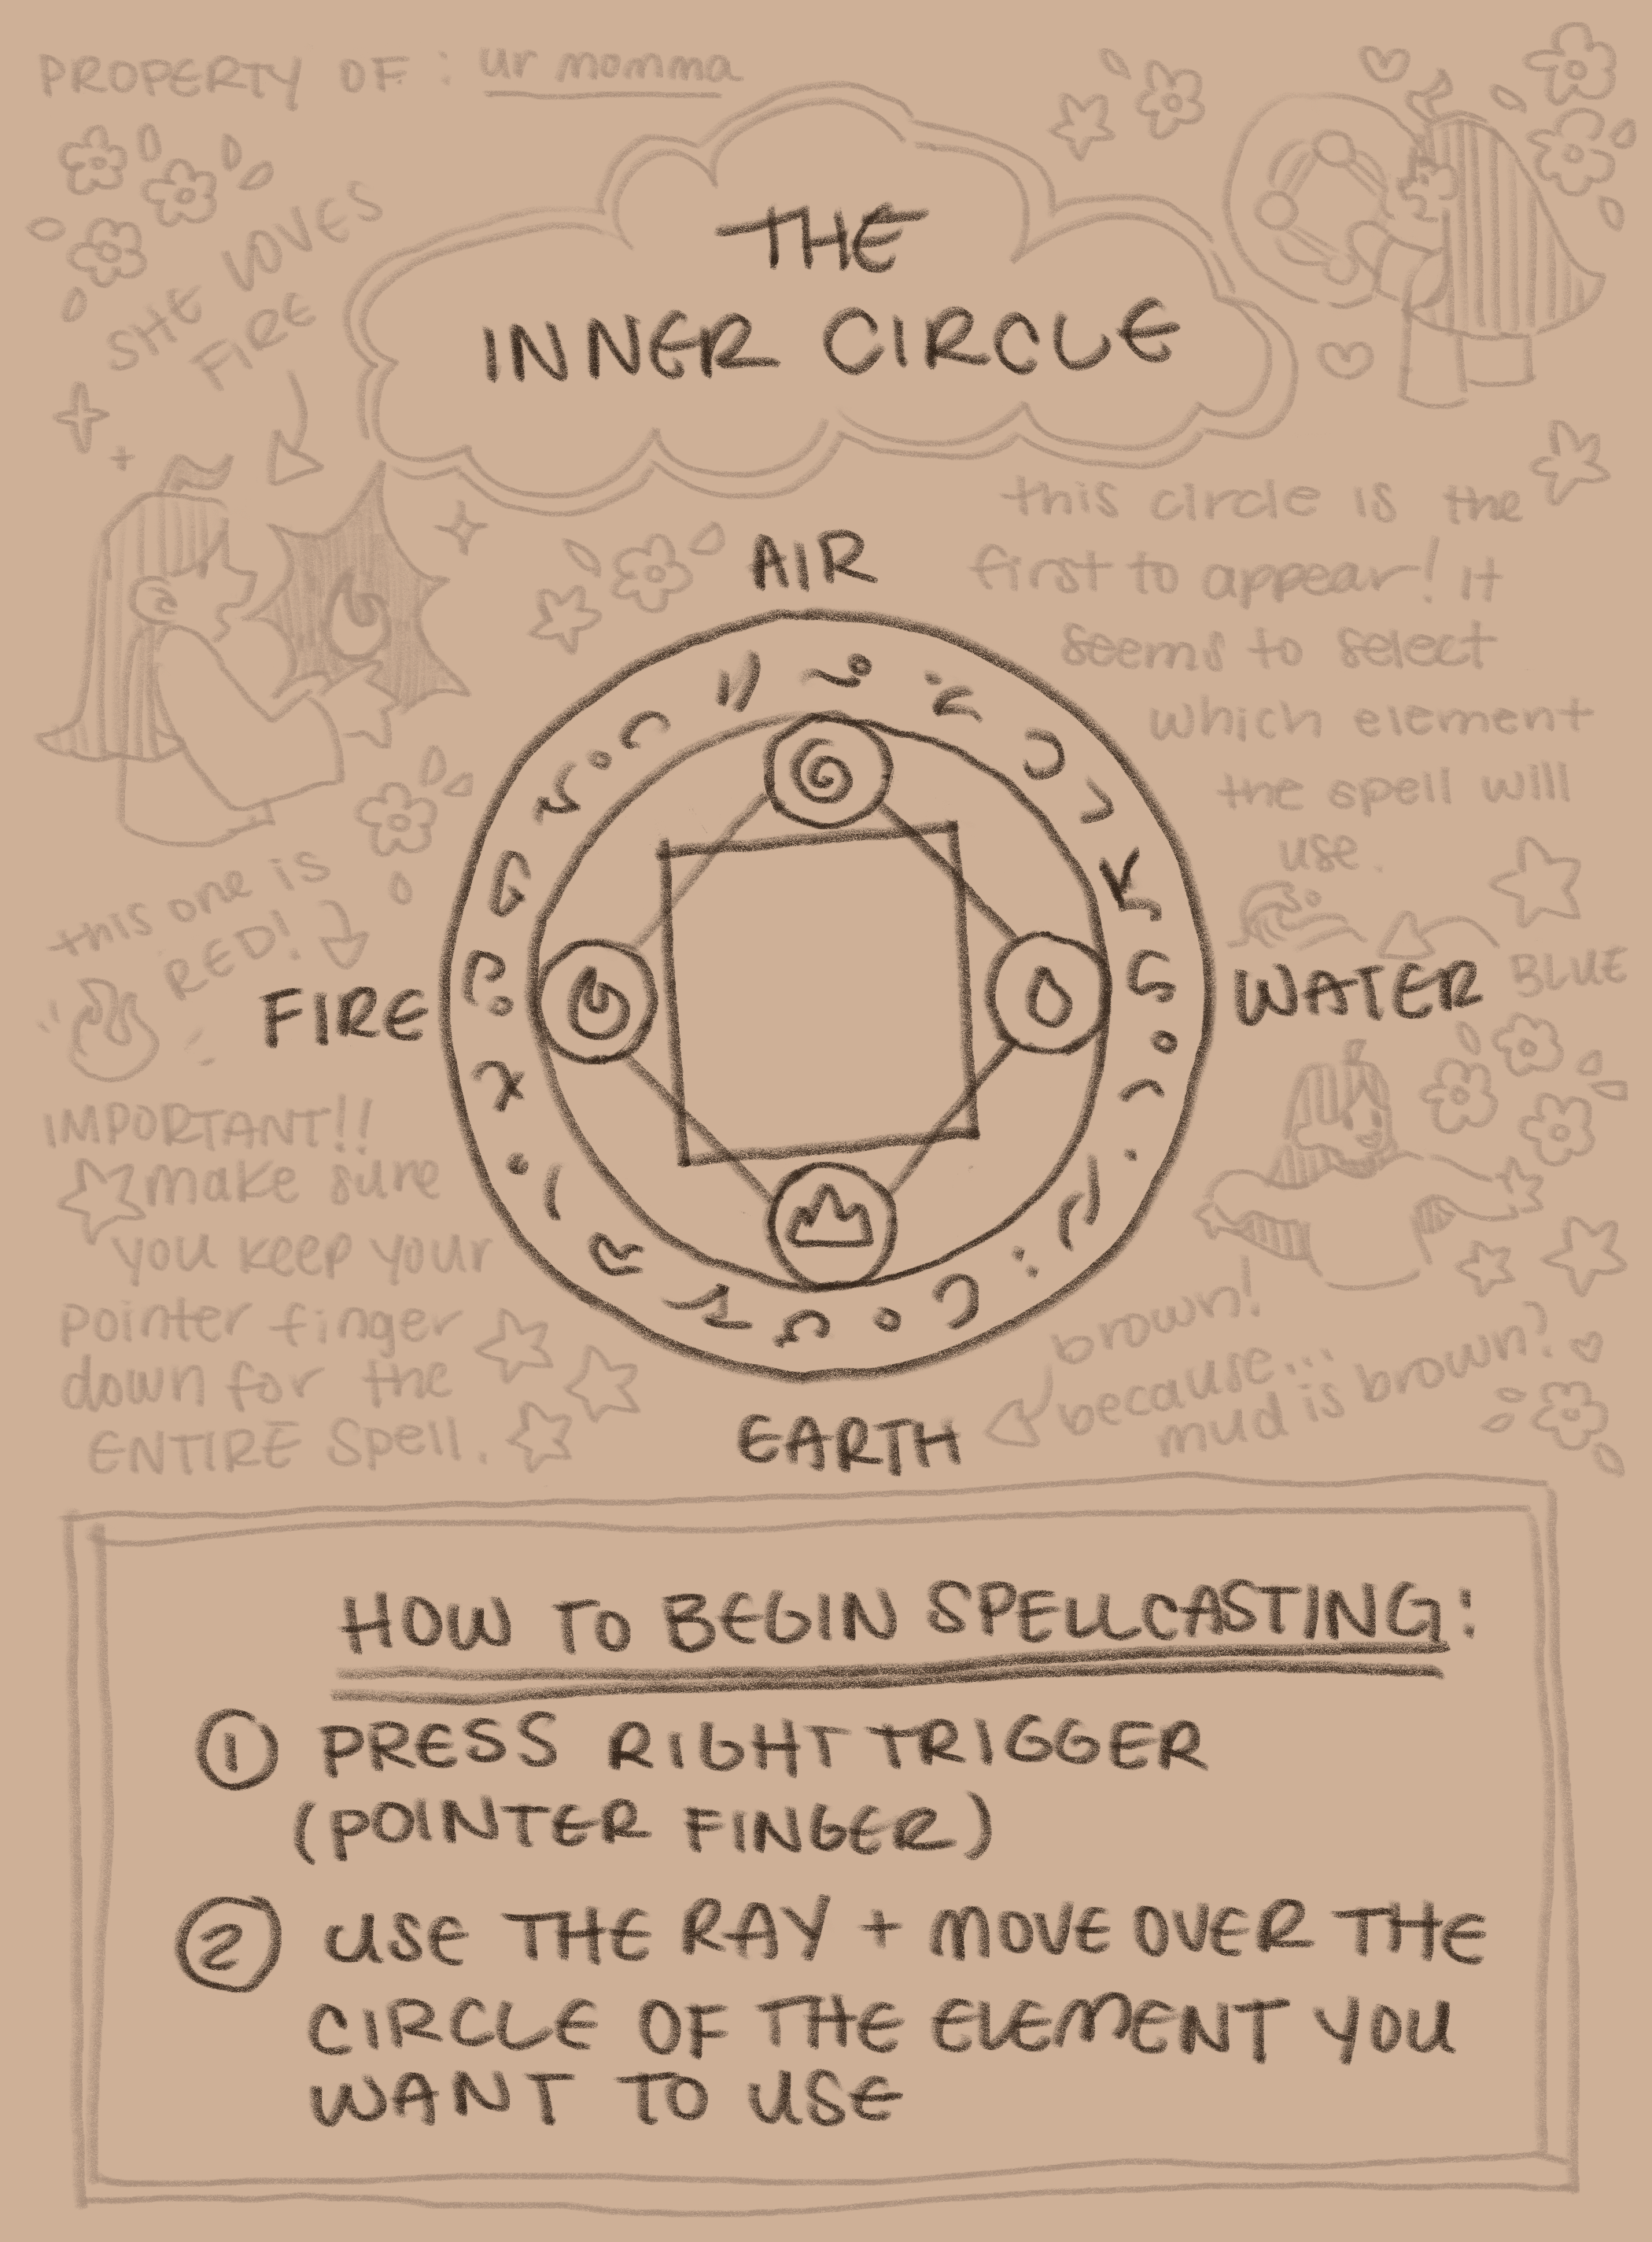 PROPERTY OF: ur momma
THE
INNER CIRCLE
SHE LOVES
FIRE
this circle is the
first to appear! it
seems to select
which element
the spell will
use.
AIR
this one is
RED!
FIRE
WATER
BLUE
IMPORTANT!!
make sure
you keep your
pointer finger
down for the
ENTIRE spell.
brown!
because...
mud is brown?
EARTH
HOW TO BEGIN SPELLCASTING:
1 PRESS RIGHT TRIGGER
(POINTER FINGER)
2 USE THE RAY + MOVE OVER THE
CIRCLE OF THE ELEMENT YOU
WANT TO USE